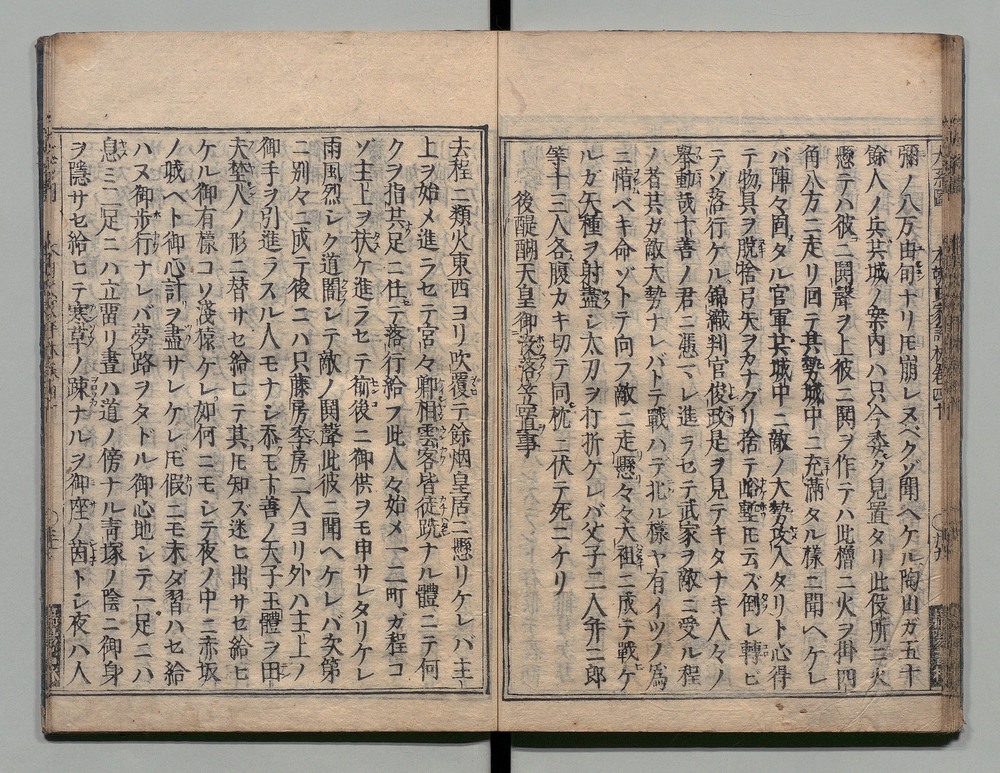 彌ノ八万由旬ナリ𪜈崩レヌベクゾ聞ヘケル陶山ガ五十
餘人ノ兵共城ノ案内ハ只今委ク見置タリ此役所ニ火
懸テハ彼ニ鬨聲ヲ上彼ニ鬨ヲ作テハ此櫓ニ火ヲ掛四
角八方ニ走リ回テ其勢城中ニ充滿タル樣ニ聞ヘケレ
バ陣々固タル官軍共城中ニ敵ノ大勢攻入タリト心得
テ物具ヲ脱捨弓矢ヲカナグリ捨テ𪜈云ズ倒レ轉ビ
テゾ落行ケル錦織判官俊政是ヲ見テキタナキ人々ノ
擧動哉十善ノ君ニ憑マレ進ラセテ武家ヲ敵ニ受ル程
ノ者共ガ敵大勢ナレバトテ戰ハデ北ル樣ヤ有イツノ爲
ニ惜ベキ命ゾトテ向フ敵ニ走懸々々大袒ニ成テ戰ケ
ルガ矢種ヲ射盡シ太刀ヲ打折ケレバ父子二人并郎
等十三人各腹カキ切テ同枕ニ伏テ死ニケリ
後醍醐天皇御沒落笠置事
去程ニ類火東西ヨリ吹覆テ餘烟皇居ニ懸リケレバ主
上ヲ始メ進ラセテ宮々卿相雲客皆徒跣ナル體ニテ何
クヲ指共足ニ任テ落行給フ此人々始メ一二町ガ程コ
ソ主上ヲ扶ケ進ラセテ前後ニ御供ヲモ申サレタリケレ
雨風烈シク道闇シテ敵ノ鬨聲此彼ニ聞ヘケレバ次第
ニ別々ニ成テ後ニハ只藤房季房二人ヨリ外ハ主上ノ
御手ヲ引進ラスル人モナシ忝モ十善ノ天子玉體ヲ田
夫野人ノ形ニ替サセ給ヒテ其𪜈知ズ迷ヒ出サセ給ヒ
ケル御有樣コソ淺猿ケレ如何ニモシテ夜ノ中ニ赤坂
ノ城ヘト御心計ヲ盡サレケレ𪜈假ニモ未ダ習ハセ給
ハヌ御歩行ナレバ夢路ヲタドル御心地シテ一足ニハ
息ミ二足ニハ立留リ晝ハ道ノ傍ナル靑塚ノ陰ニ御身
ヲ隱サセ給ヒテ寒草ノ踈ナルヲ御座ノ茵トシ夜ハ人